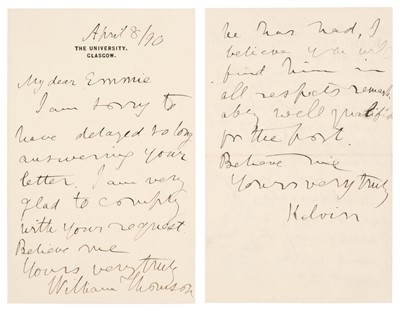 April 8/90
THE UNIVERSITY,
GLASGOW.
My dear Emmie
I am sorry to
have delayed so long
answering your
letter. I am very
glad to comply
with your request.
Believe me
Yours very truly
William Thomson
he has had, I
believe you will
find him in
all respects remark
ably well qualified
for the post.
Believe me
Yours very truly
Kelvin